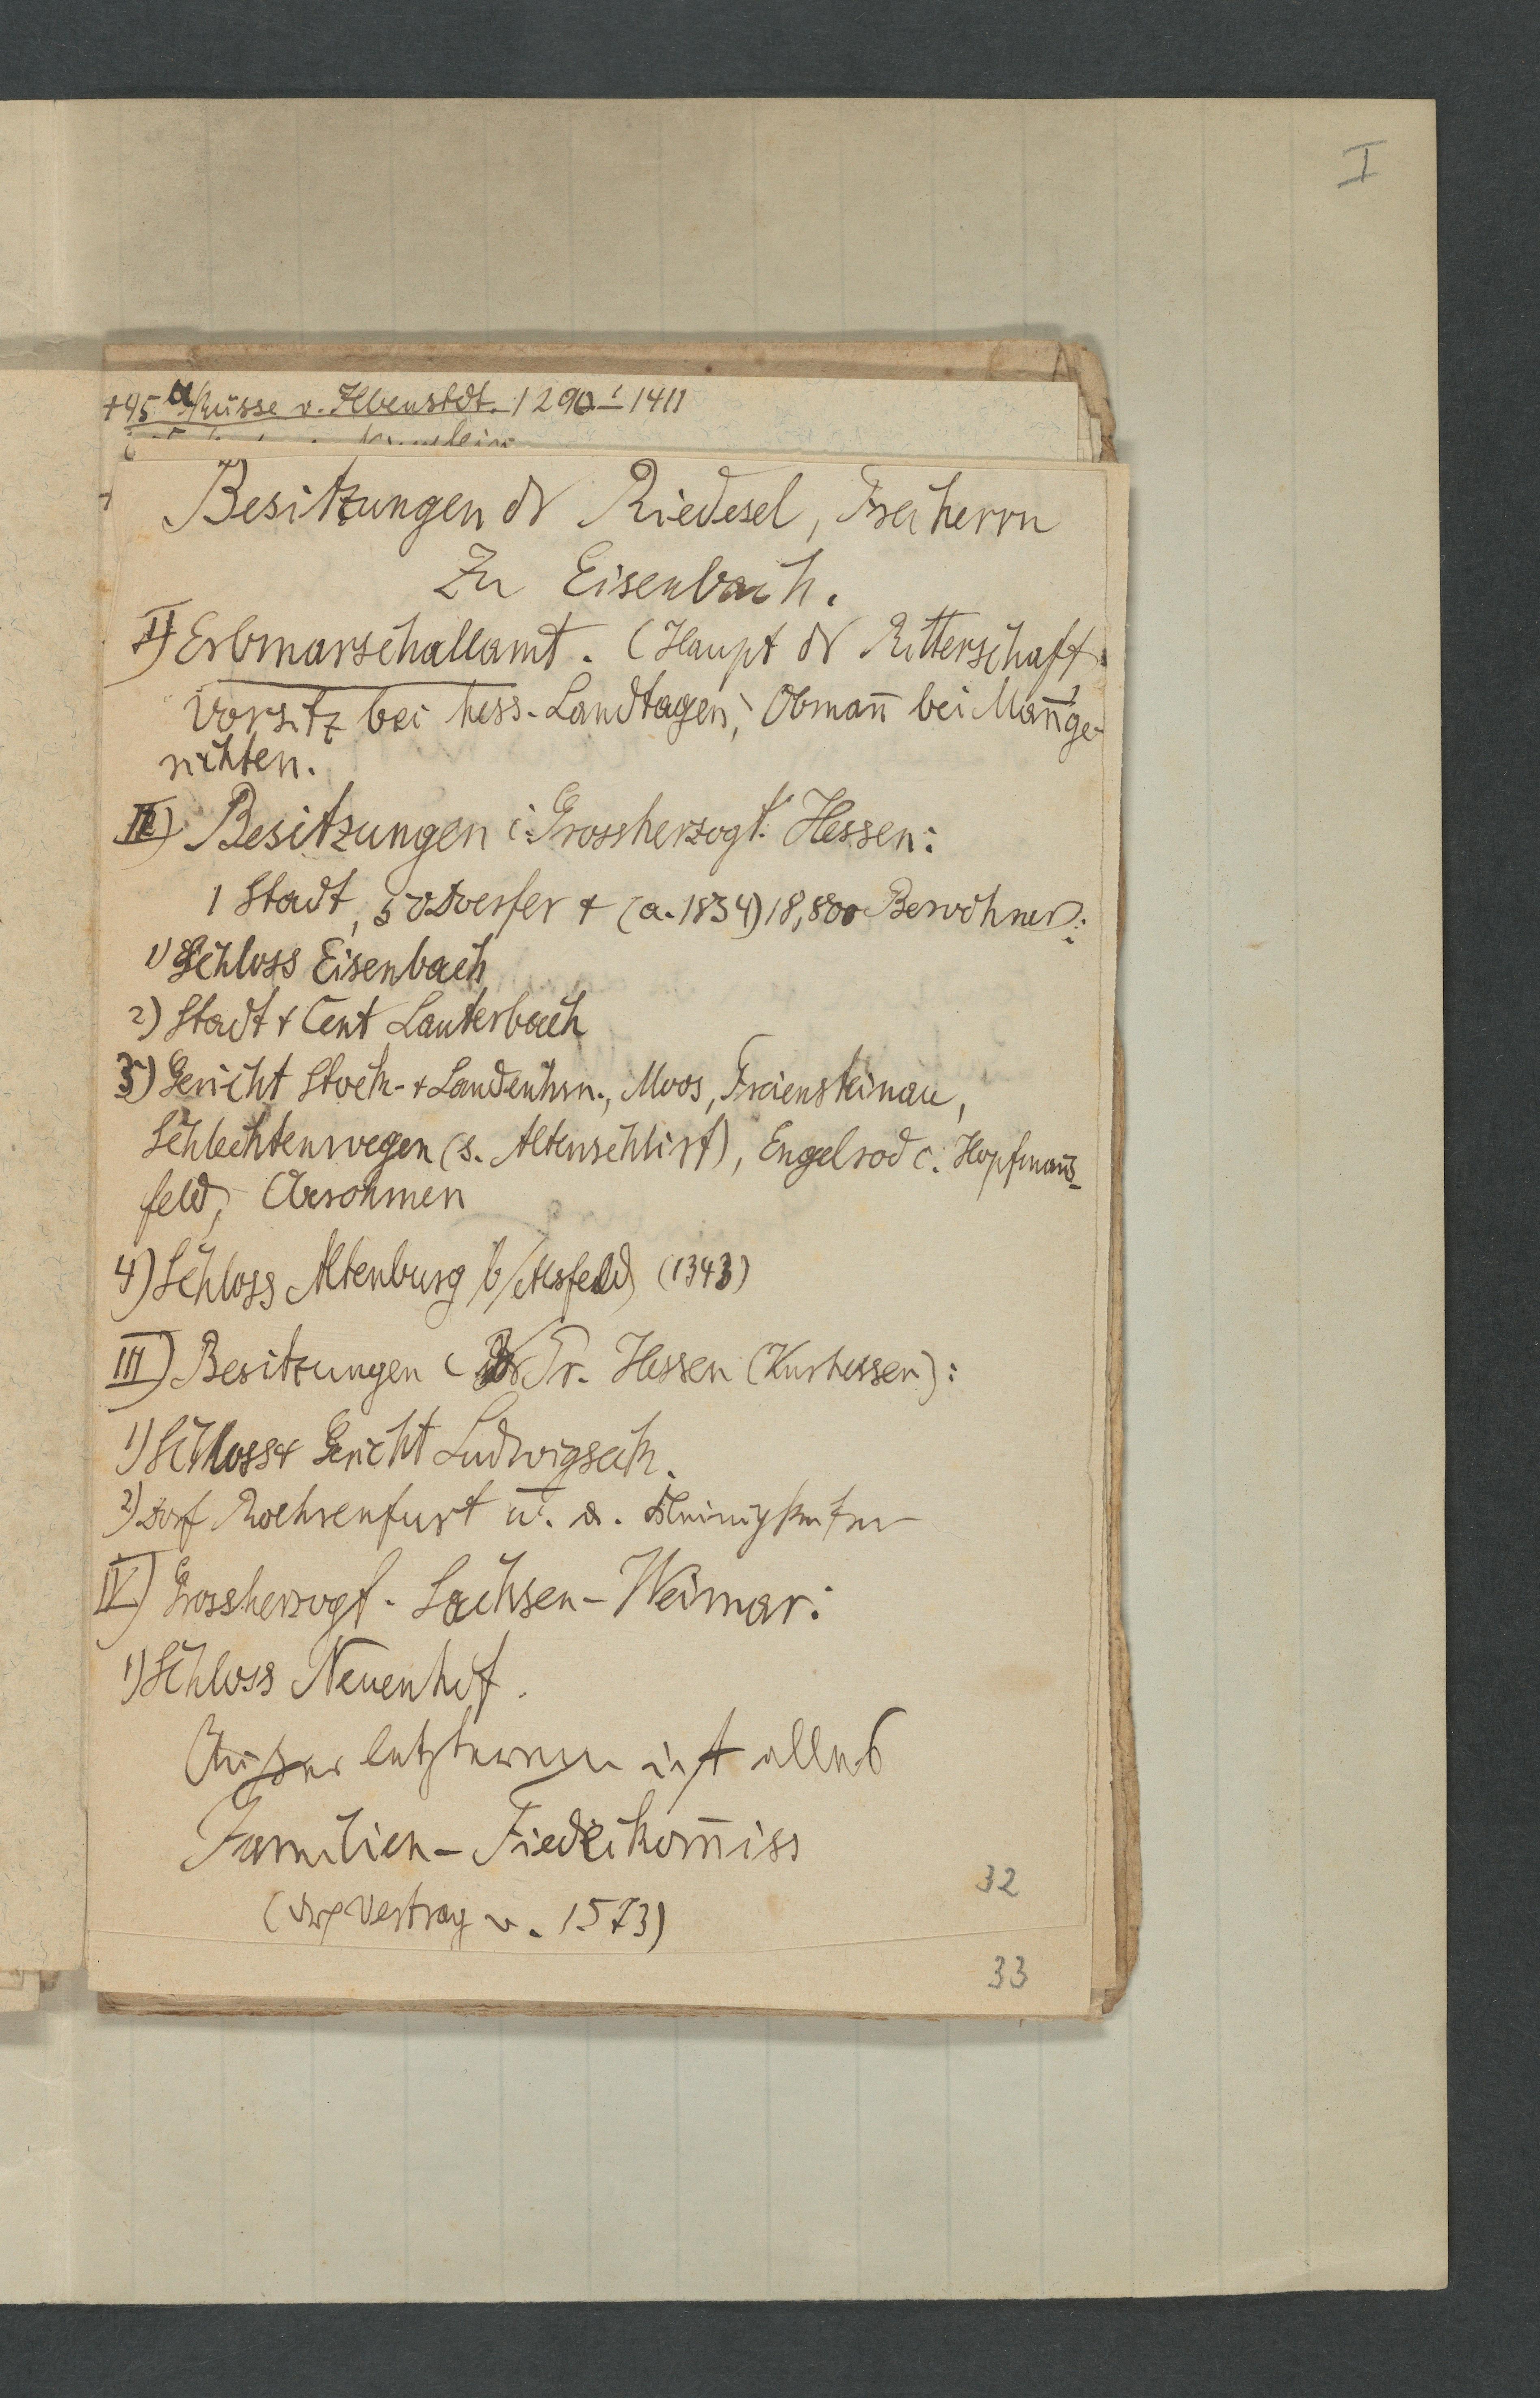 I
+45 a) Küsse v. Ilbenstdt. 1290–1411
Besitzungen dr Riedesel, Freiherrn
zu Eisenbach.
I) Erbmarschallamt. (Haupt dr Ritterschaft
Vorsitz bei hess. Landtagen, Obmañ bei Mañge-
richten.
II) Besitzungen i. Grossherzogt. Hessen:
1 Stadt, 50 Doerfer + (a. 1834) 18,800 Bewohner:
1) Schloss Eisenbach
2) Stadt + Cent Lauterbach
3) Gericht Stock- + Landenhsn., Moos, Freiensteinau,
Schlechtenwegen (s. Altenschlirf), Engelrod c. Hopfmañs-
feld, Obrohmen
4) Schloss Altenburg b/Alsfeld (1343)
III) Besitzungen Pr. Hessen (Kurhessen):
1) Schloss + Gericht Ludwigseck.
2) Dorf Roehrenfurt u. a. Kleinigkeiten
IV) Grossherzogt. Sachsen-Weimar:
1) Schloss Neuenhof.
Außer letzterem ist alles
Familien-Fiedeikom̄iss
(Vertrag v. 1573)
32
33